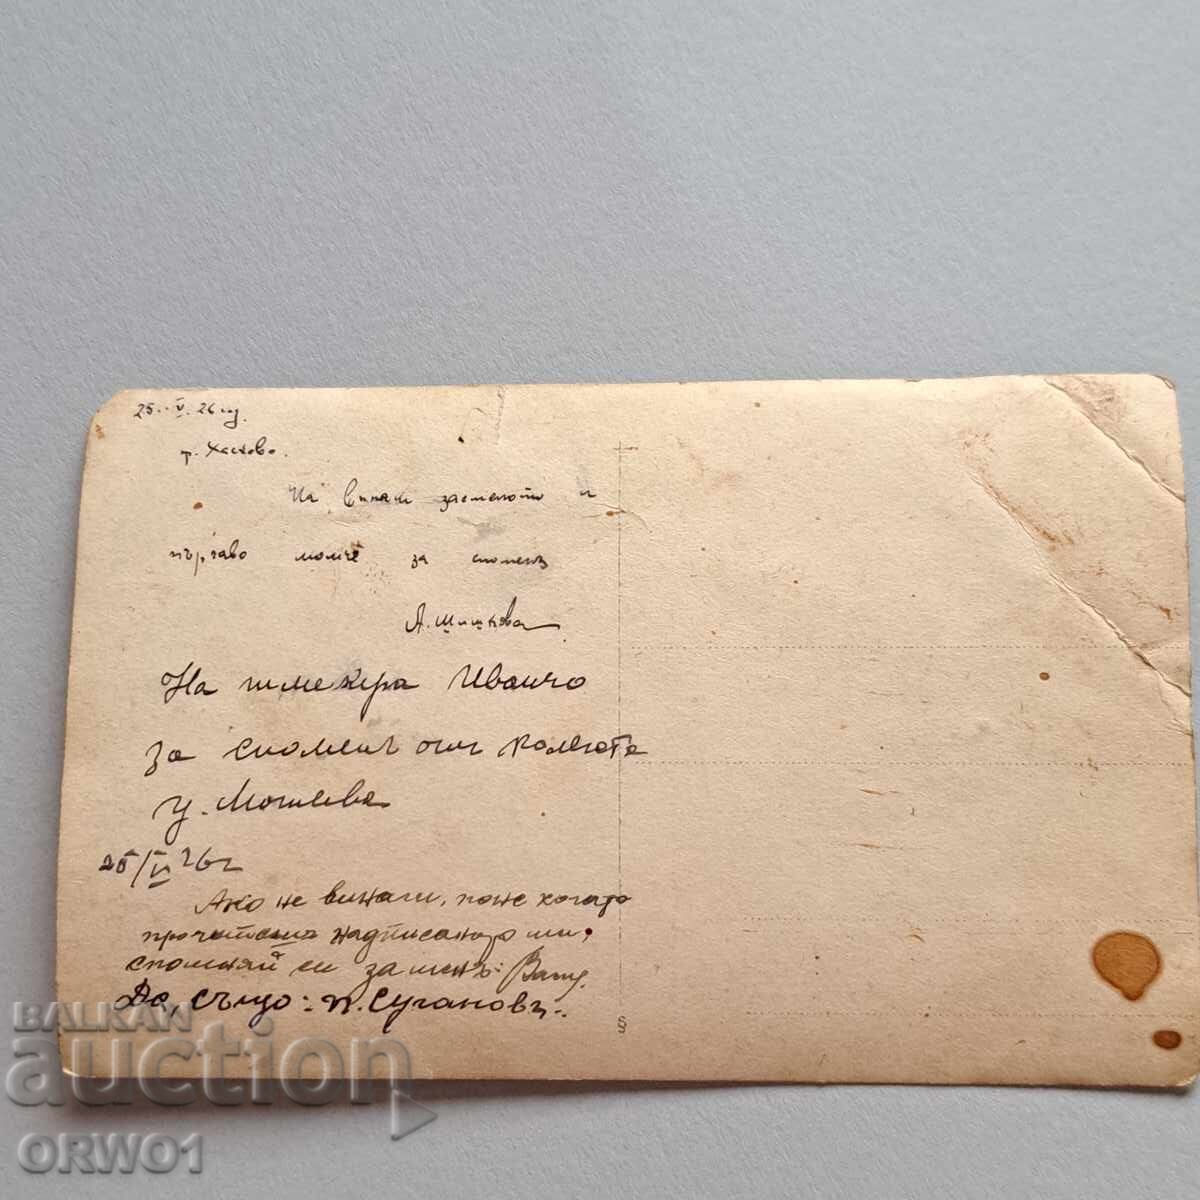 25. V. 26 год.
гр. Хасково.
На винаги засмелото и
пъргаво момче за споменъ
А. Шишкова
На шмекера Иванчо
за споменъ отъ колегата
У. Мотева
25/VI 26 г
Ако не винаги, поне когато
прочиташъ надписанно ми,
спомняй си за менъ:
Да, също: п. Сугановъ.
§
BALKAN
auction
ORWO1